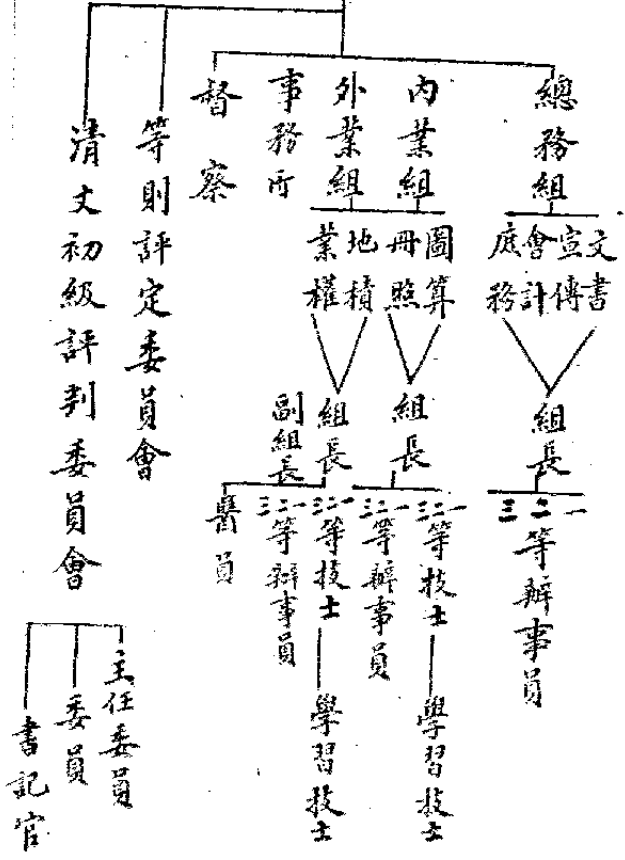 總務組
文書
宣傳
會計
庶務
組長
一二三等辦事員
內業組
圖算
冊照
組長
一二三等技士
學習技士
一二三等辦事員
外業組
地積
業權
組長
副組長
一二三等技士
學習技士
一二三等辦事員
醫員
事務所
督察
等則評定委員會
清丈初級評判委員會
主任委員
委員
書記官